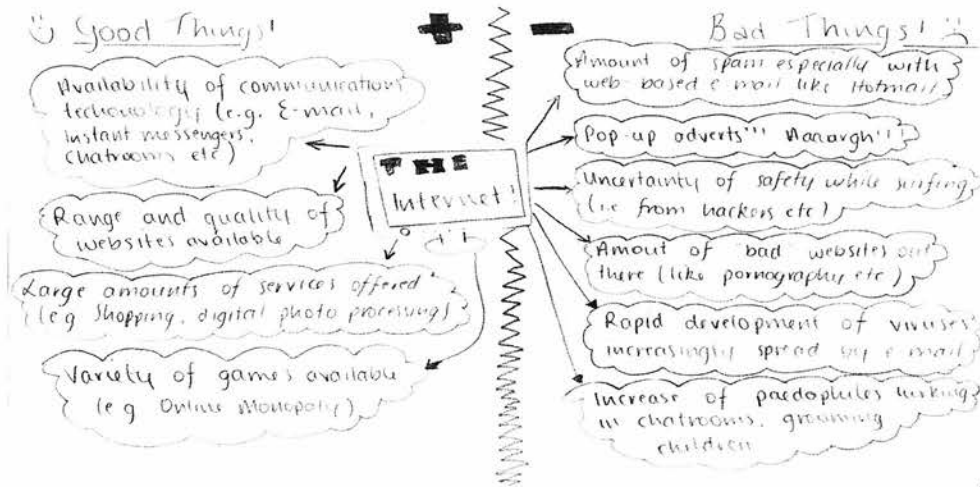 Good Things!
+
-
Bad Things!
Availability of communications
technology (e.g. E-mail,
instant messengers,
chatrooms etc)
Range and quality of
websites available
Large amounts of services offered
(e.g Shopping, digital photo processing)
Variety of games available
(e.g Online Monopoly)
THE
Internet!
Amount of spam especially with
web-based e-mail like Hotmail
Pop-up adverts!!! Aaaargh!!!
Uncertainty of safety while surfing
(i.e from hackers etc)
Amout of "bad" websites out
there (like pornography etc)
Rapid development of viruses,
increasingly spread by e-mail
Increase of paedophiles lurking
in chatrooms, grooming
children